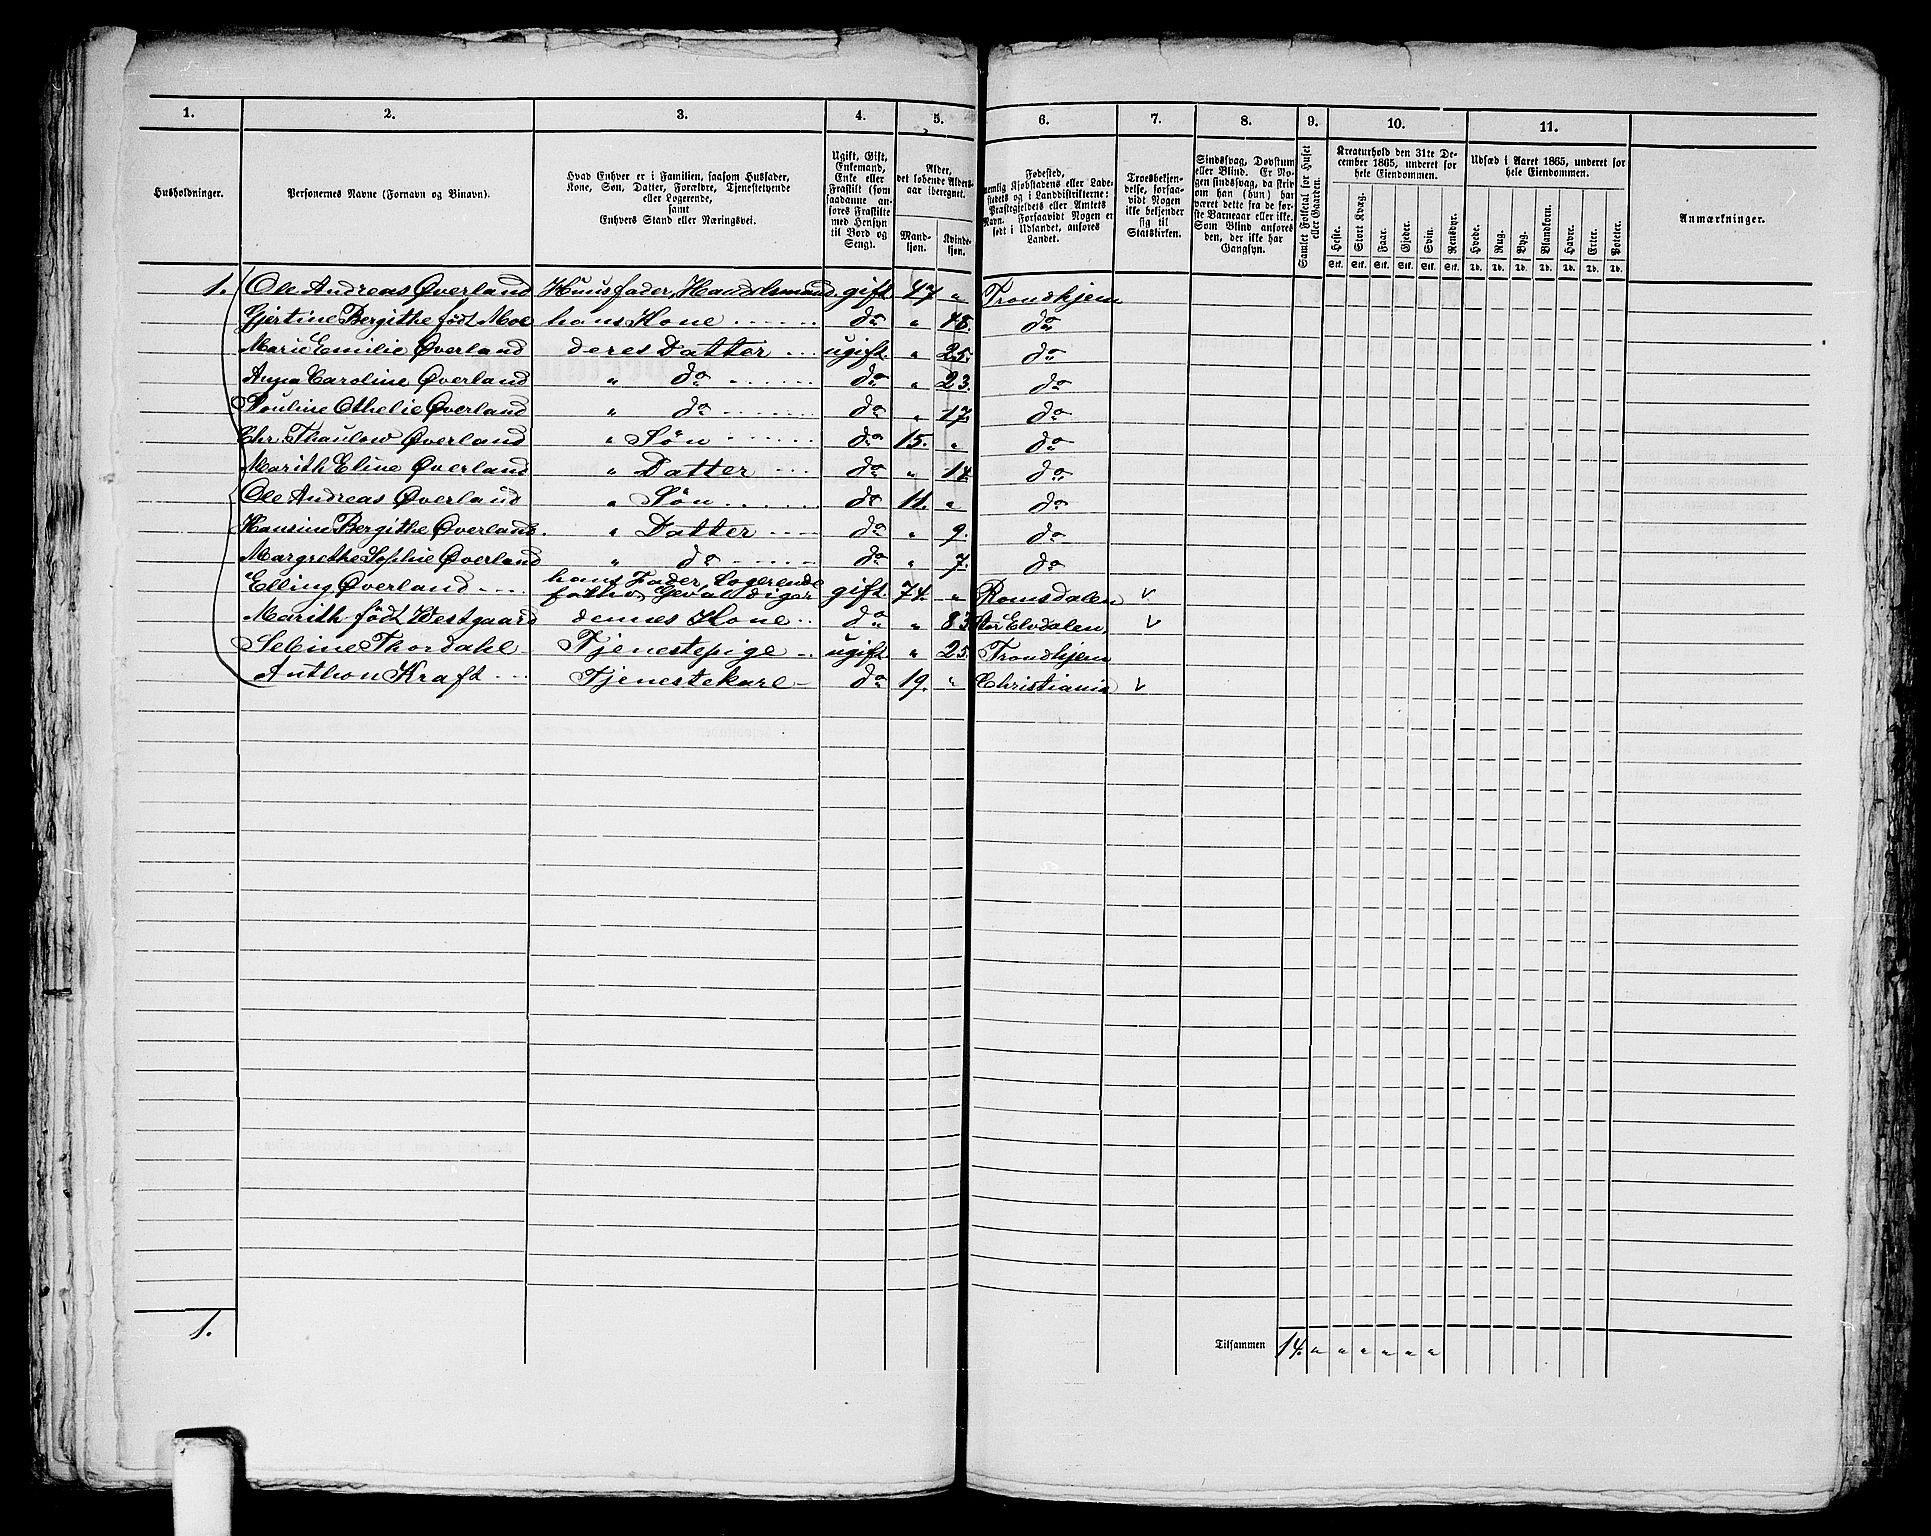 1. 2. 3. 4. 5. 6. 7. 8. 9. 10. 11.
Husholdninger.
Personernes Navne (Fornavn og Binavn).
Hvad Enhver er i Familien, saasom Husfader,
Kone, Søn, Datter, Forældre, Tjenestetyende
eller Logerende,
samt
Enhvers Stand eller Næringsvei.
Ugift, Gift,
Enkemand,
Enke eller
Fraskilt (som
saadanne an-
føres Fraskilte
med Hensyn
til Bord og
Seng).
Alder,
det løbende Alders-
aar iberegnet.
Mand-
kjøn.
Kvinde-
kjøn.
Fødested,
nemlig Kjøbstadens eller Lade-
stedets og i Landdistrikterne:
Præstegjeldets eller Amtets
Navn. Forsaavidt Nogen er
født i Udlandet, anføres
Landet.
Troesbekjen-
delse, forsaa-
vidt Nogen
ikke bekjender
sig til
Statskirken.
Sindssvag, Døvstum
eller Blind. Er No-
gen sindssvag, da skriv
om han (hun) har
været dette fra de før-
ste Barneaar eller ikke.
Som Blind anføres
den, der ikke har
Gangsyn.
Samlet Folketal for Huset
eller Gaarden.
Kreaturhold den 31te De-
cember 1865, underet for
hele Eiendommen.
Heste. Stort Kvæg. Faar. Gjeder. Svin. Rensdyr.
Stk. Stk. Stk. Stk. Stk. Stk.
Udsæd i Aaret 1865, underet for
hele Eiendommen.
Hvede. Rug. Byg. Blandkorn. Havre. Erter. Poteter.
Td. Td. Td. Td. Td. Td. Td.
Anmærkninger.
1. Ole Andreas Øverland Huusfader, Handelsmand. gift 47 " Trondhjem
Gjertine Bergithe født Moe hans Kone do " 48. do
Marie Emilie Øverland deres Datter ugift. " 25. do
Anna Caroline Øverland " do do " 23. do
Pouline Othelie Øverland " do do " 17. do
Chr. Thaulow Øverland " Søn do 15. " do
Marith Eline Øverland " Datter do " 14 do
Ole Andreas Øverland " Søn do 11. " do
Hansine Bergithe Øverland. " Datter do " 9. do
Margrethe Sophie Øverland " do do " 7. do
Elling Øverland hans Fader, Logerende
Gevaldiger gift 74. " Romsdalen v
Marith født Westgaard dennes Kone do " 83 Stor Elvdalen, v
Seline Thordahl Tjenestepige ugift " 25. Trondhjem
Anthon Kraft Tjenestekarl do 19. " Christiania v
1. Tilsammen 14. " " " " " "